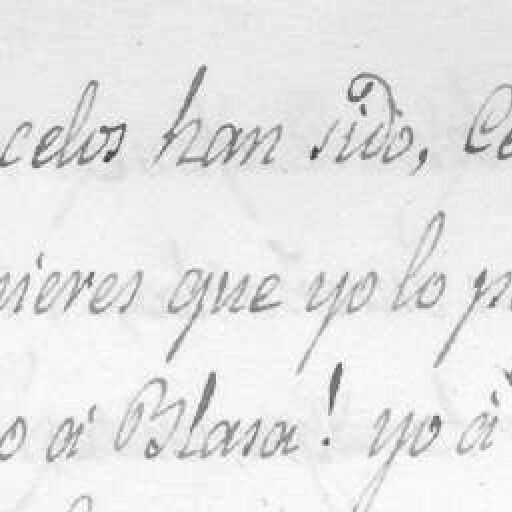 celos han sido, Ce
nieres que yo lo p
o á Blasa! yo á